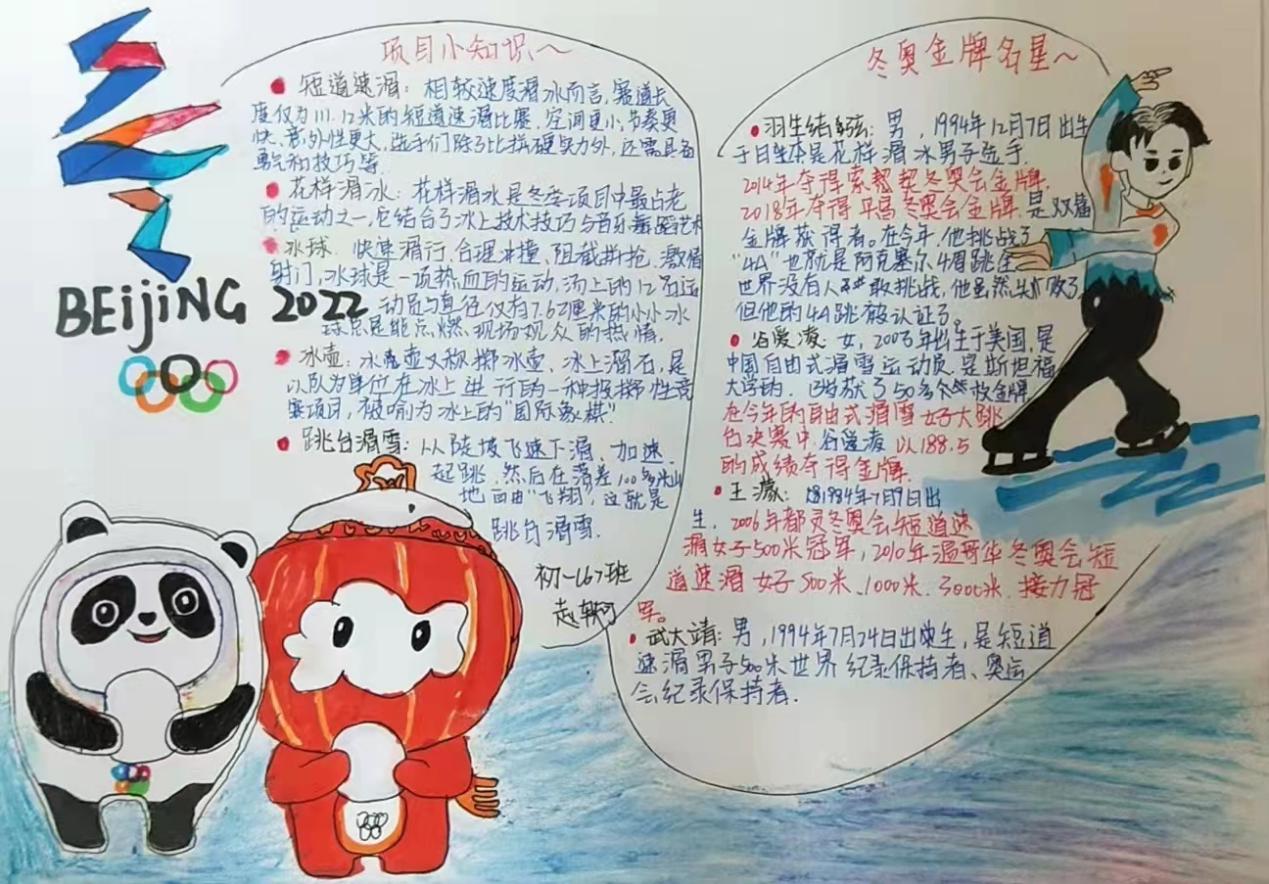 BEijiNG 2022
项目小知识～
短道速滑：相较速度滑冰而言，赛道长
度仅为111.12米的短道速滑比赛，空间更小，节奏更
快，意外性更大，选手们除了比拼硬实力外，还需具备
勇气和技巧等
花样滑冰：花样滑冰是冬奥项目中最古老
的运动之一，它结合了冰上技术技巧与音乐舞蹈艺术
冰球：快速滑行，合理冲撞，阻截拼抢，激情
射门，冰球是一项热血的运动，场上的12名运
动员与直径仅有7.62厘米的小小冰
球总是能点燃现场观众的热情．
冰壶：冰壶又称掷冰壶、冰上溜石，是
以队为单位在冰上进行的一种投掷性竞
赛项目，被喻为冰上的"国际象棋"
跳台滑雪：从陡坡飞速下滑、加速
起跳，然后在落差100多米山
地自由"飞翔"，这就是
跳台滑雪．
初一167班
冬奥金牌名星～
羽生结弦：男，1994年12月7日出生
于日本是花样滑冰男子选手．
2014年夺得索契冬奥会金牌．
2018年夺得平昌冬奥会金牌．是双届
金牌获得者。在今年，他挑战了
"4A"也就是阿克塞尔4周跳全
世界没有人敢挑战，他虽然失败了
但他的4A跳被认证了。
谷爱凌：女，2003年出生于美国，是
中国自由式滑雪运动员，是斯坦福
大学的．已斩获了50多个枚金牌
在今年的自由式滑雪女子大跳
台决赛中，谷爱凌以188.5
的成绩夺得金牌．
王濛：1984年7月9日出
生，2006年都灵冬奥会短道速
滑女子500米冠军，2010年温哥华冬奥会短
道速滑女子500米、1000米、3000米．接力冠
军。
武大靖：男，1994年7月24日出生，是短道
速滑男子500米世界纪录保持者、奥运
会纪录保持者．